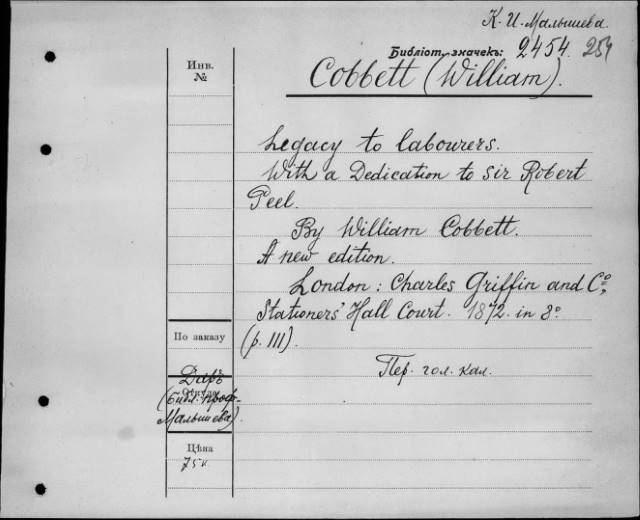 К. И. Малышева.
Библіот. значекъ: 2454. 254
Инв.
№
Cobbett (William).
Legacy to labourers.
With a Dedication to sir Robert
Peel.
By William Cobbett.
A new edition.
London: Charles Griffin and Cº,
Stationers' Hall Court. 1872. in 8º
(p. III).
По заказу
Пер. гол. кал.
Даръ
Откуда
(библ. проф.
Малышева).
Цѣна
75 к